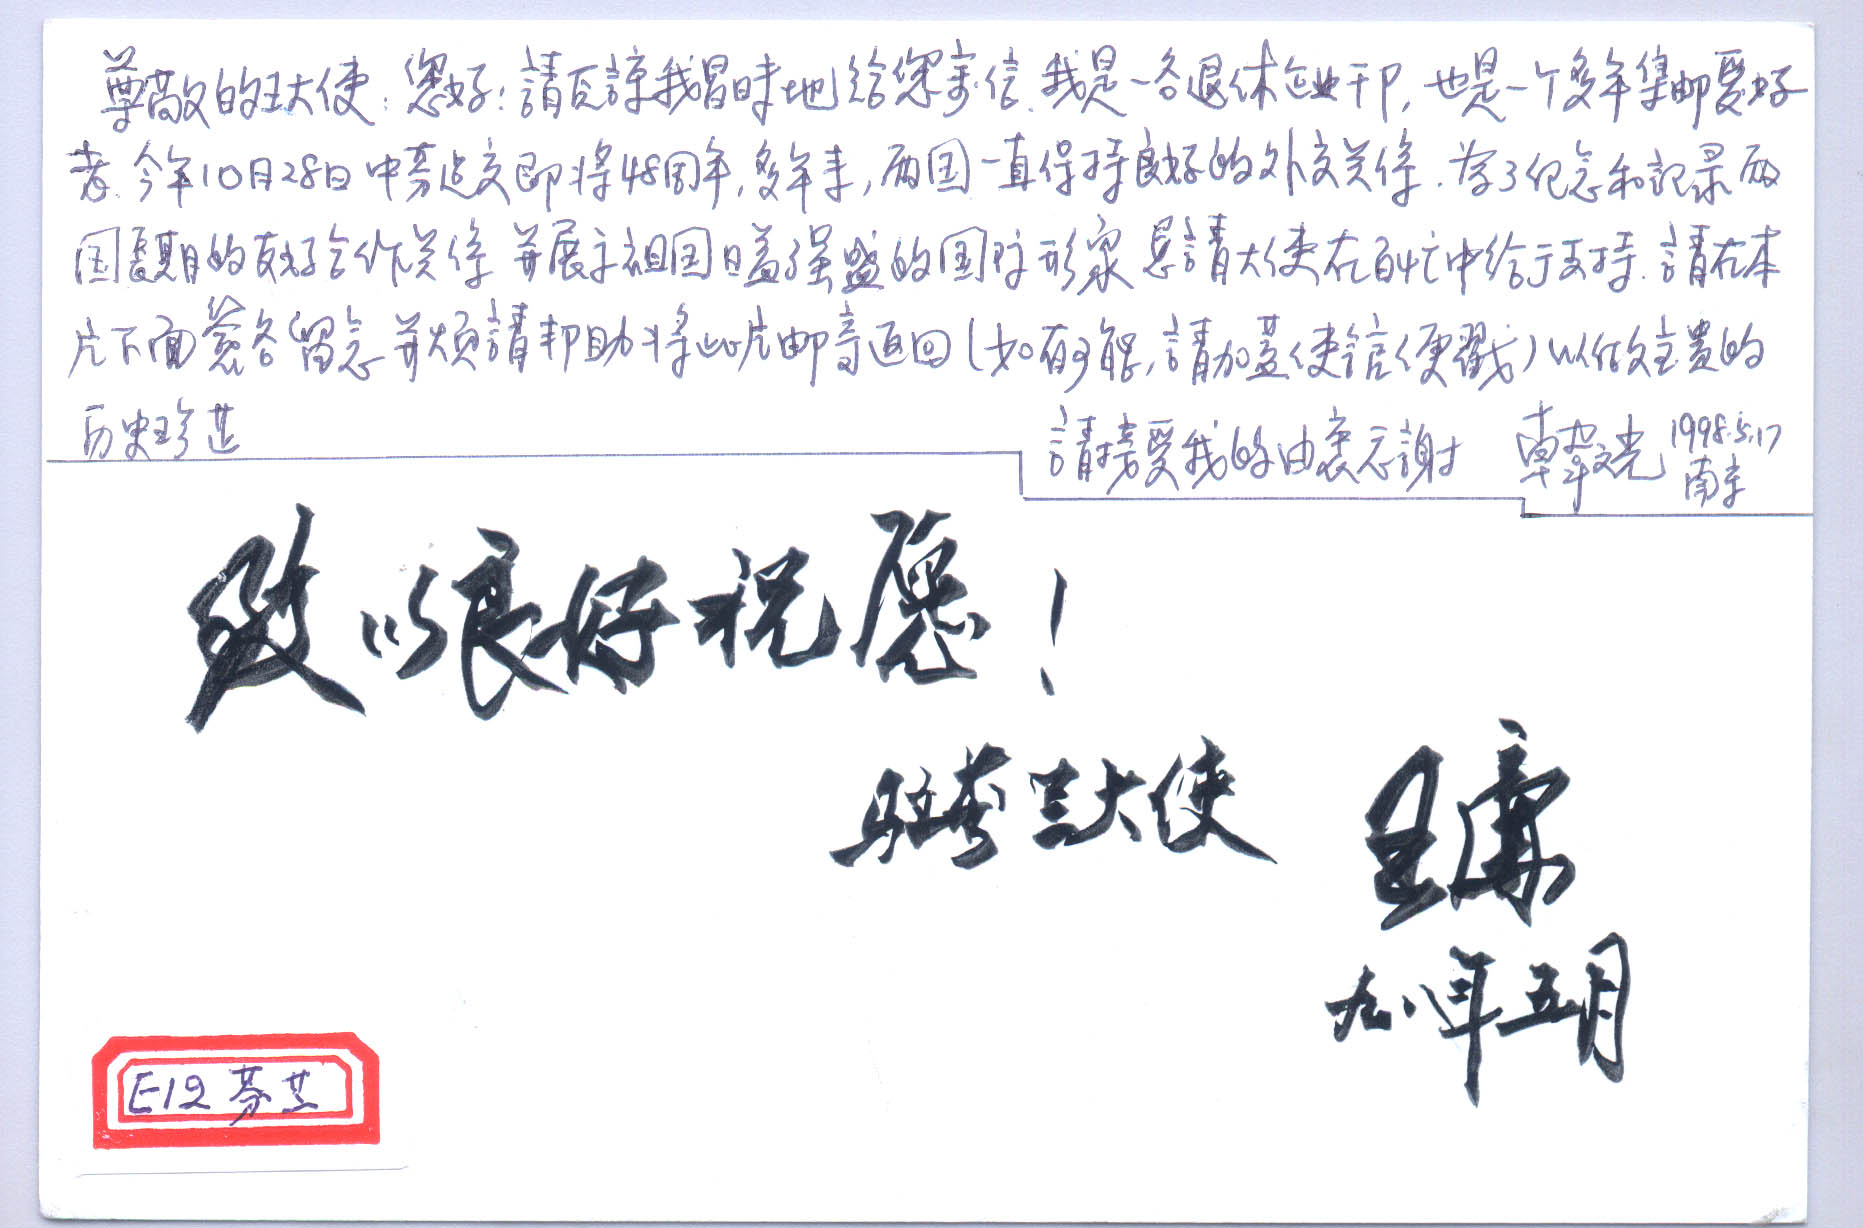 尊敬的王大使：您好！請原諒我冒昧地给您寄信．我是一名退休企业干卩，也是一个多年集邮爱好
者．今年10月28日中芬建交即将48周年，多年来，两国一直保持良好的外交关係．为了纪念和記录两
国長期的友好合作关係 并展示祖国日益强盛的国际形象 恳請大使在百忙中给于支持．請在本
片下面簽名留念 并烦請邦助将此片邮寄返回（如有可能，請加蓋使館便戳）以作宝贵的
历史珍芷
請接受我的由衷感謝 韓文光 1998.5.17
南京
致以良好祝愿！
驻芬兰大使
九八年五月
E12 芬芷